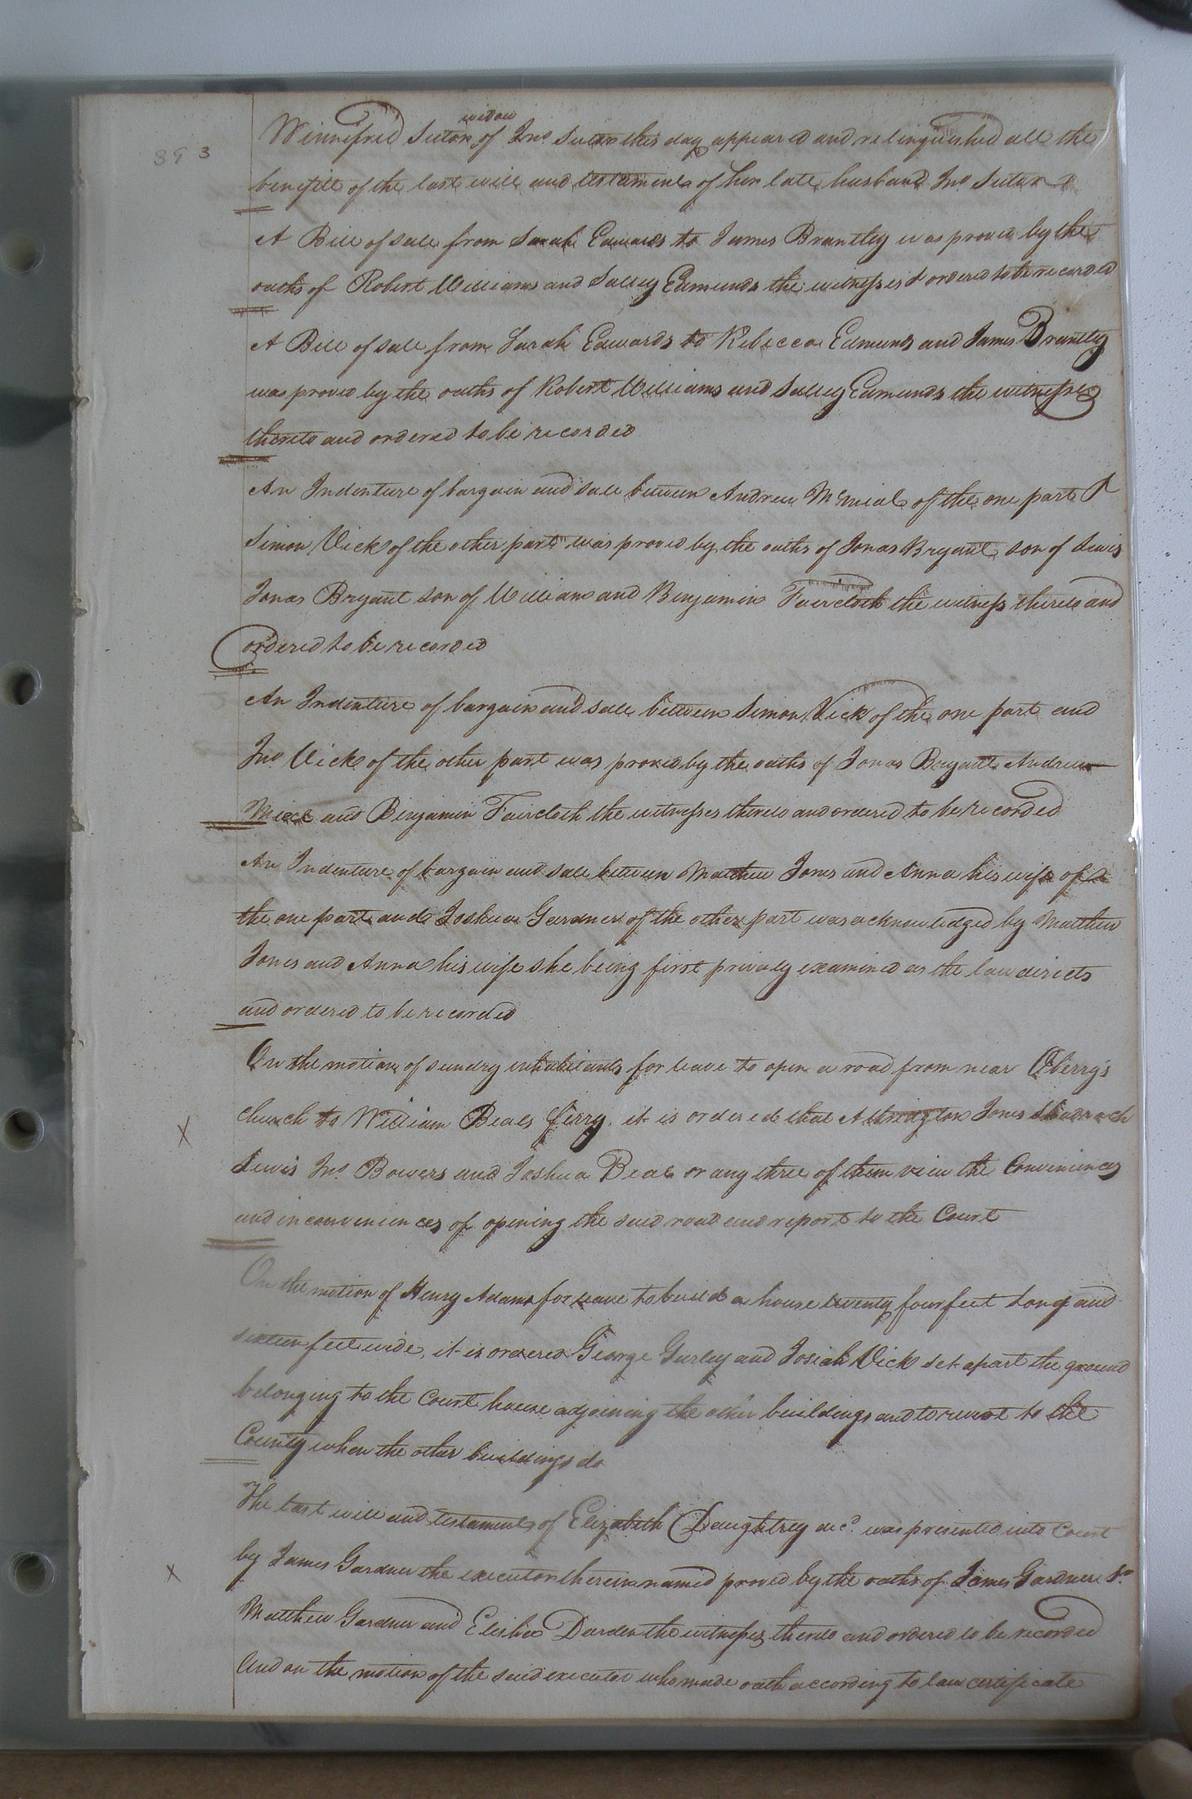 393
widow
Winnefred Suter of Jno. Suter this day appeared and relinquished all the
benefitt of the last will and testament of her late husband Jno Suter
A Bill of sale from Sarah Edwards to James Brantley was proved by the
oaths of Robert Williams and Salley Edmunds the witnesses & ordered to be recorded
A Bill of sale from Sarah Edwards to Rebecca Edmunds and James Brantley
was proved by the oaths of Robert Williams and Salley Edmunds the witnesses
thereto and ordered to be recorded
An Indenture of bargain and sale between Andrew of the one part &
Simon Vick of the other part was proved by the oaths of Jonas Bryant son of Lewis
Jonas Bryant son of William and Benjamin Faircloth the witness thereto and
ordered to be recorded
An Indenture of bargain and sale between Simon Vick of the one part and
Jno. Vick of the other part was proved by the oaths of Jonas Bryant Andrew
and Benjamin Faircloth the witnesses thereto and ordered to be recorded
An Indenture of bargain and sale between Matthew Jones and Anna his wife of
the one part and Joshua Gardner of the other part was acknowledged by Matthew
Jones and Anna his wife she being first privaly examined as the law directs
and ordered to be recorded
On the motion of sundry inhabitants for leave to open a road from near Oberry's
church to William Beals ferry. it is ordered that Jones Shadrach
Lewis Jno. Bowers and Joshua Beal or any three of them view the Conveniences
and inconveniences of opening the said road and report to the Court
X
On the motion of Henry Adams for leave to build a house twenty four feet long and
sixteen feet wide, it is ordered George Gurley and Josiah Vick set apart the ground
belonging to the Court house adjoining the other buildings and to revert to the
County when the other buildings do
The last will and testament of Elizabeth Daughtrey decd. was presented into Court
by James Gardner the executor therein named proved by the oaths of James Gardner Sr
X
Matthew Gardner and Elisha Darden the witnesses thereto and ordered to be recorded
And on the motion of the said executor who made oath according to law certificate